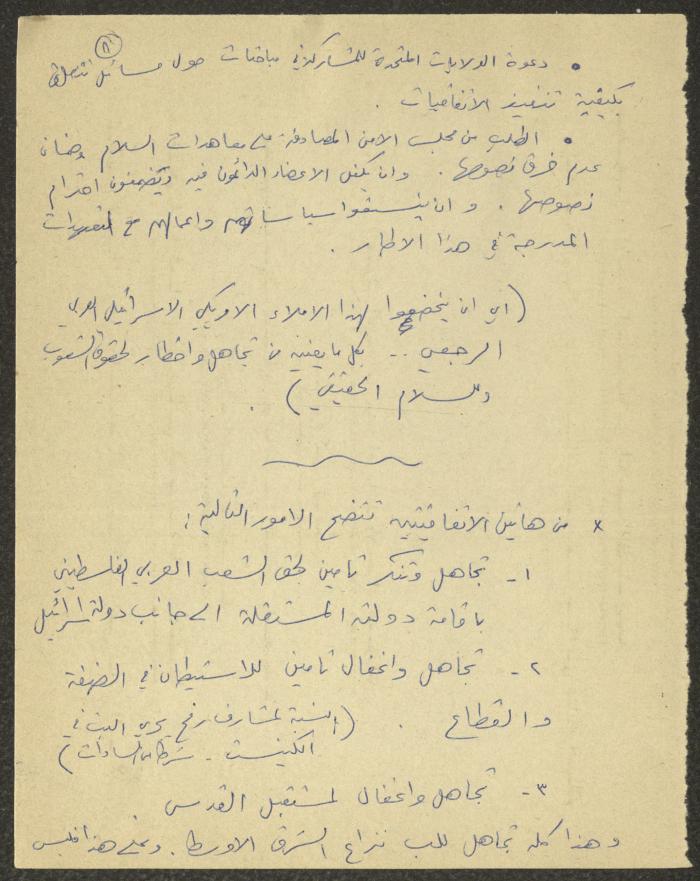 ٨
• دعوة الولايات المتحدة للمشاركة في مباحثات حول مسائل تتعلق
بكيفية تنفيذ الاتفاقيات .
• الطلب من مجلس الامن المصادقة على معاهدات السلام وضمان
عدم خرق نصوصها . وان يكفل الاعضاء الدائمون فيه ويضمنون احترام
نصوصها . وان ينسقوا سياساتهم واعمالهم مع التعهدات
المدرجة في هذا الاطار .
(اي ان يخضعوا لهذا الاملاء الامريكي الاسرائيلي العربي
الرجعي .. بكل ما يعنيه من تجاهل واخطار لحقوق الشعوب
وللسلام الحقيقي) .
* من هاتين الاتفاقيتين تتضح الامور التالية :
١- تجاهل وتنكر تامين لحق الشعب العربي الفلسطيني
باقامة دولته المستقلة الى جانب دولة اسرائيل
٢- تجاهل واغفال تامين للاستيطان في الضفة
والقطاع . (بالنسبة لمشارف رفح يجري البت في
الكنيست - شرط السادات)
٣- تجاهل واغفال لمستقبل القدس
وهذا كله تجاهل للب نزاع الشرق الاوسط . وعلى هذا فليس